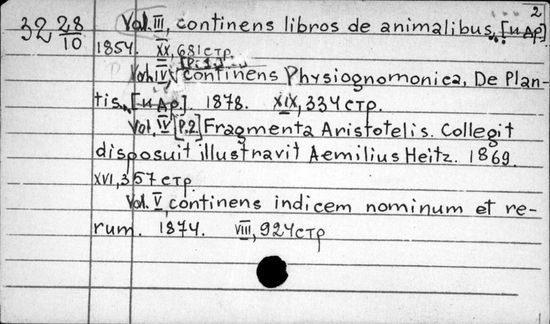 2
32 28/10
Vol. III, continens libros de animalibus, [и др]
1854. XX, 681 стр.
Vol. IV [P. 1.] continens Physiognomonica, De Plan-
tis, [и др]. 1878. XIX, 334 стр.
Vol. IV [P.2] Fragmenta Aristotelis. Collegit
disposuit illustravit Aemilius Heitz. 1869.
XVI, 357 стр.
Vol. V, continens indicem nominum et re-
rum. 1874. VIII, 924 стр